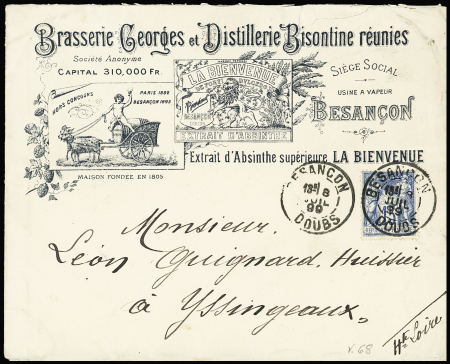 Brasserie Georges et Distillerie Bisontine réunies
Société Anonyme
CAPITAL 310,000 FR.
HORS CONCOURS
PARIS 1889
BESANÇON 1893
MAISON FONDÉE EN 1805
LA BIENVENUE
EXTRAIT D'ABSINTHE
SIÈGE SOCIAL
USINE A VAPEUR
BESANÇON
Extrait d'Absinthe supérieure LA BIENVENUE
BESANÇON
8
JUIL
99
DOUBS
BESANÇON
8
JUIL
99
DOUBS
Monsieur
Léon Guignard, Huissier
à Yssingeaux.
Hte Loire
V. 68